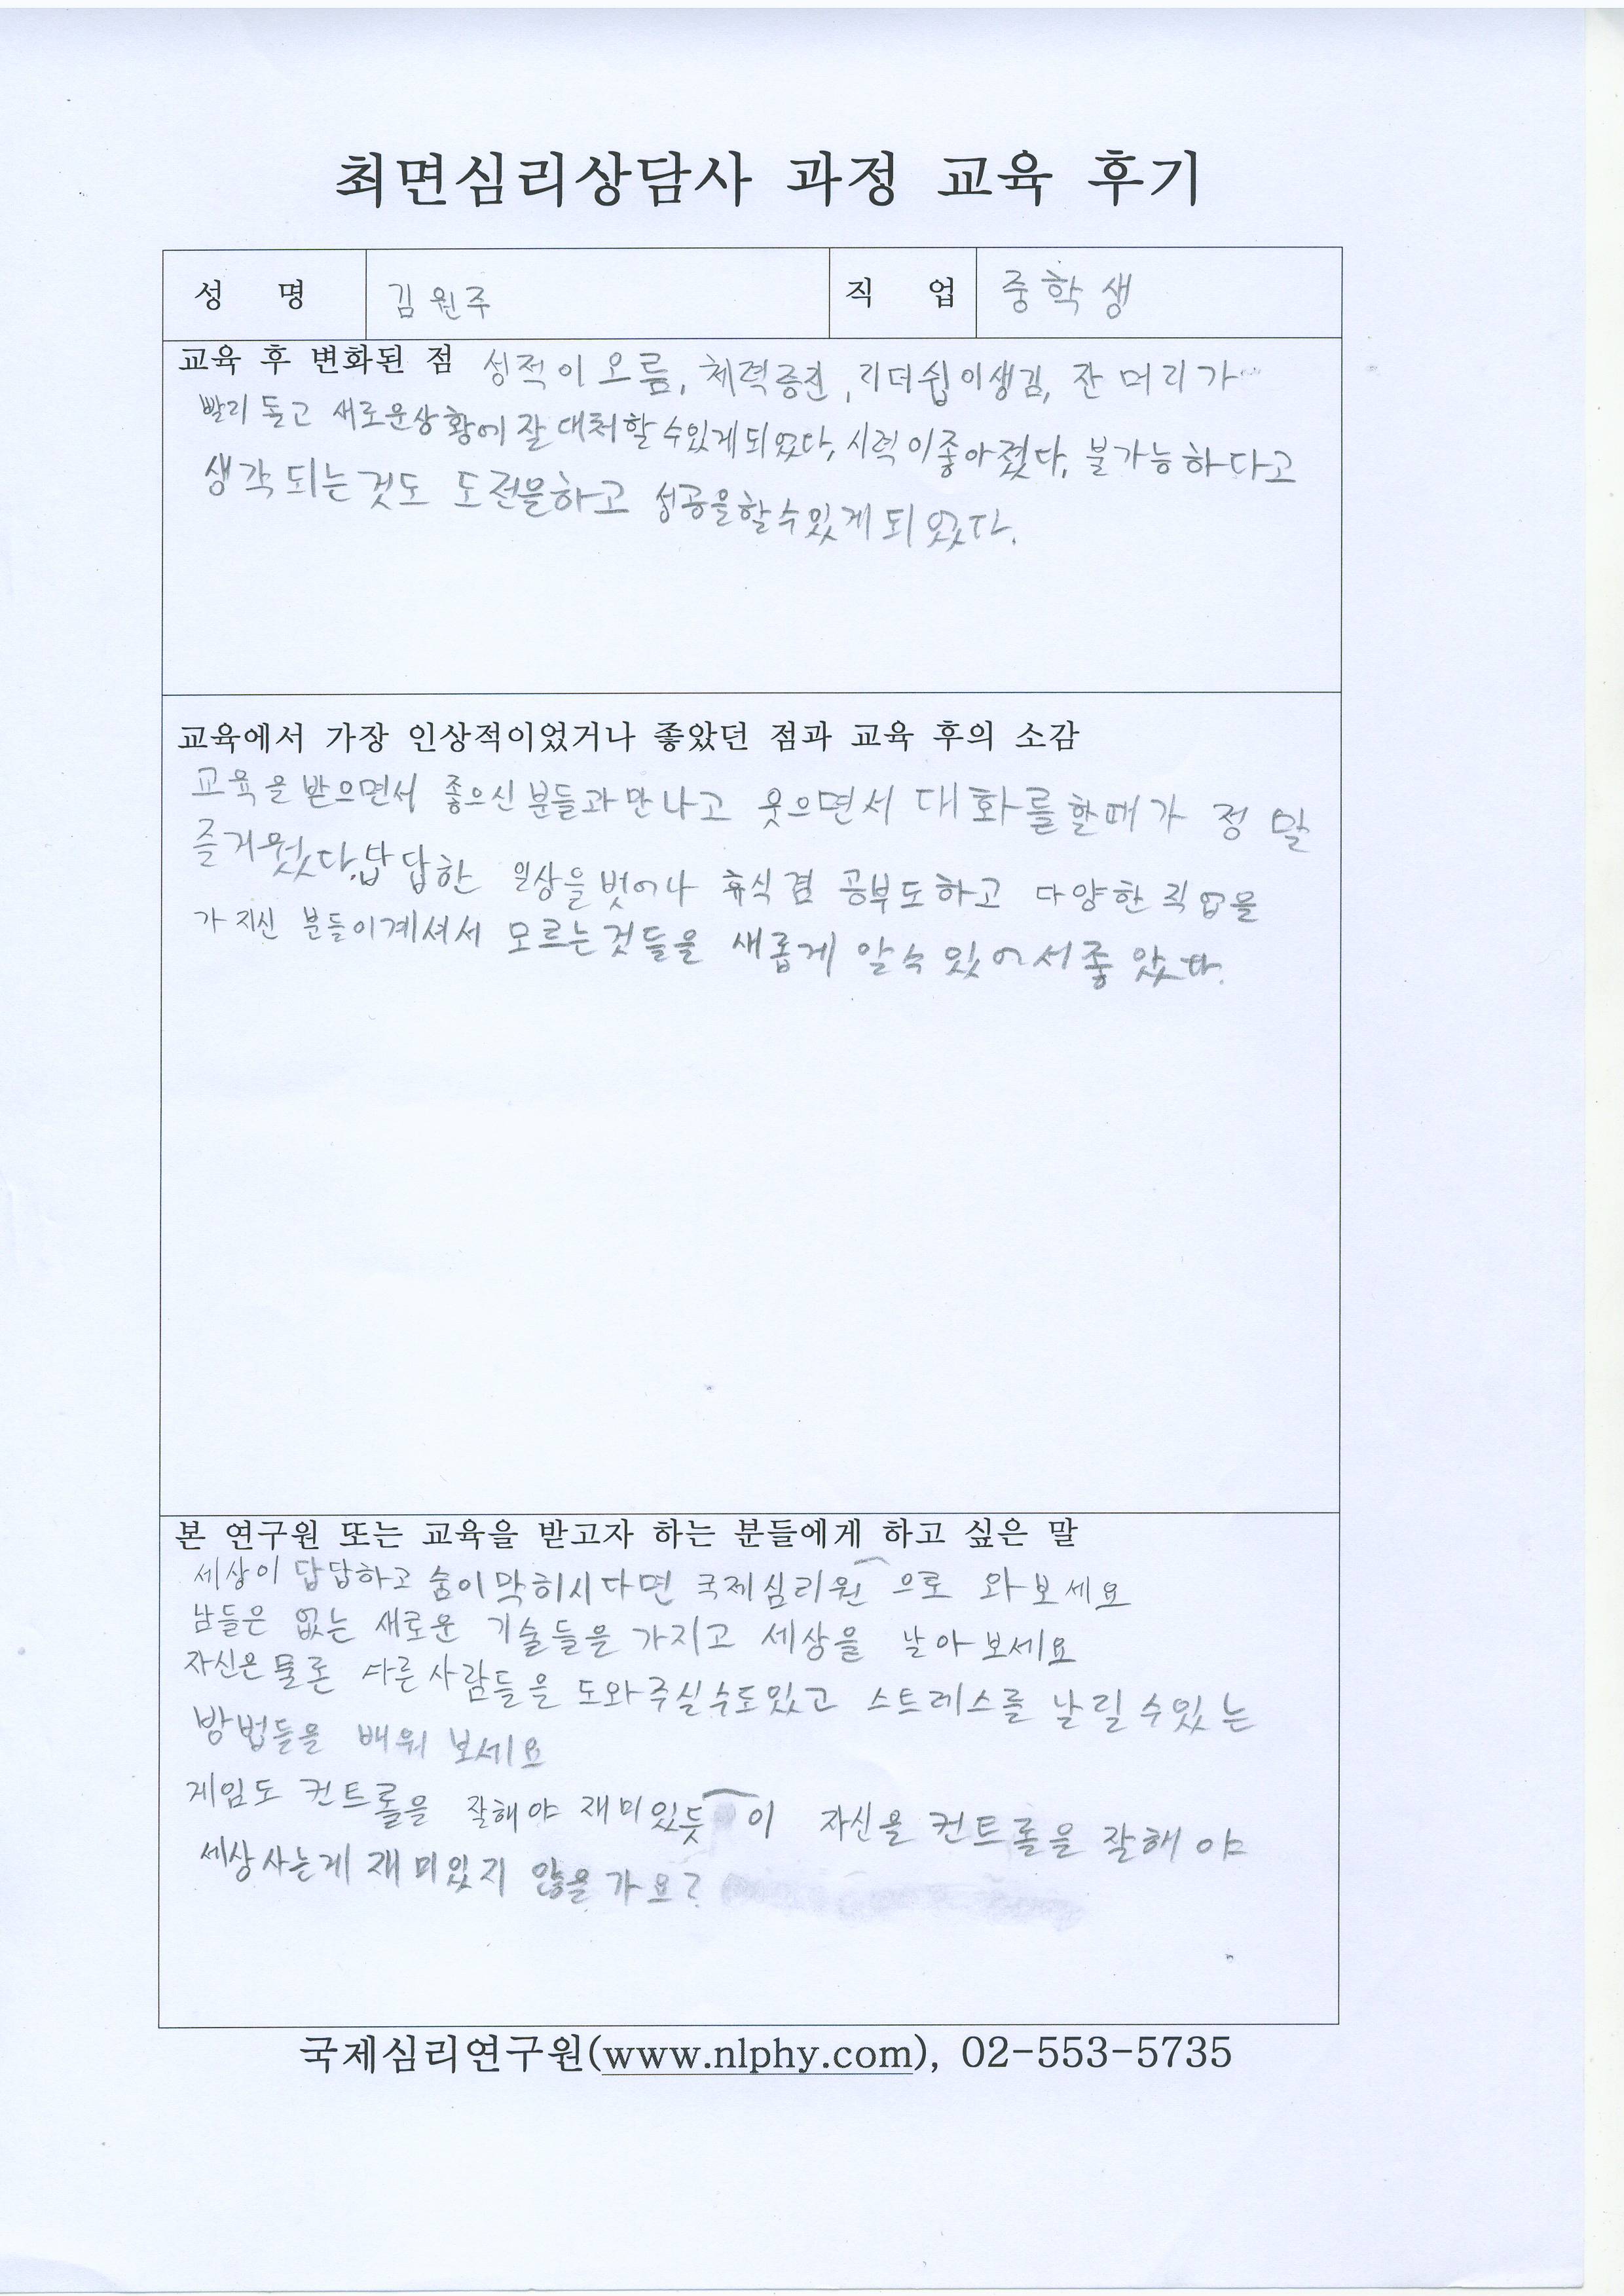 최면심리상담사 과정 교육 후기
성 명 김원주 직 업 중학생
교육 후 변화된 점 성적이 오름, 체력증진, 리더쉽이생김, 잔머리가
빨리 돌고 새로운상황에 잘 대처할 수있게되었다, 시력이좋아졌다, 불가능하다고
생각 되는것도 도전을하고 성공을할수있게 되었다.
교육에서 가장 인상적이었거나 좋았던 점과 교육 후의 소감
교육을 받으면서 좋으신 분들과 만나고 웃으면서 대화를할때가 정말
즐거웠다.답답한 일상을 벗어나 휴식 겸 공부도하고 다양한 직업을
가지신 분들이계셔서 모르는것들을 새롭게 알수 있어서좋았다.
본 연구원 또는 교육을 받고자 하는 분들에게 하고 싶은 말
세상이 답답하고 숨이막히시다면 국제심리원으로 와보세요
남들은 없는 새로운 기술들을 가지고 세상을 날아보세요
자신은물론 다른사람들을 도와주실수도있고 스트레스를 날릴 수있는
방법들을 배워 보세요
게임도 컨트롤을 잘해야 재미있듯이 자신을 컨트롤을 잘해야
세상사는게 재미있지 않을가요?
국제심리연구원(www.nlphy.com), 02-553-5735